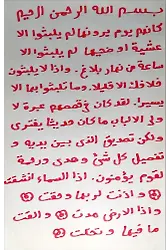 بسم الله الرحمن الرحيم
كانهم يوم يرونها لم يلبثوا الا
عشية او ضحيها لم يلبثوا الا
ساعة من نهار بلاغ. واذا لا يلبثون
خلافك الا قليلا. وما تلبثوا بها الا
يسيرا. لقد كان في قصصهم عبرة لا
ولي الالباب ما كان حديثا يفترى
ولكن تصديق الذى بين يديه و
تفصيل كل شئ وهدى ورحمة
لقوم يؤمنون. اذا السماء انشقت
واذنت لربها وحقت
واذا الارض مدت والقت
ما فيها وتخلت